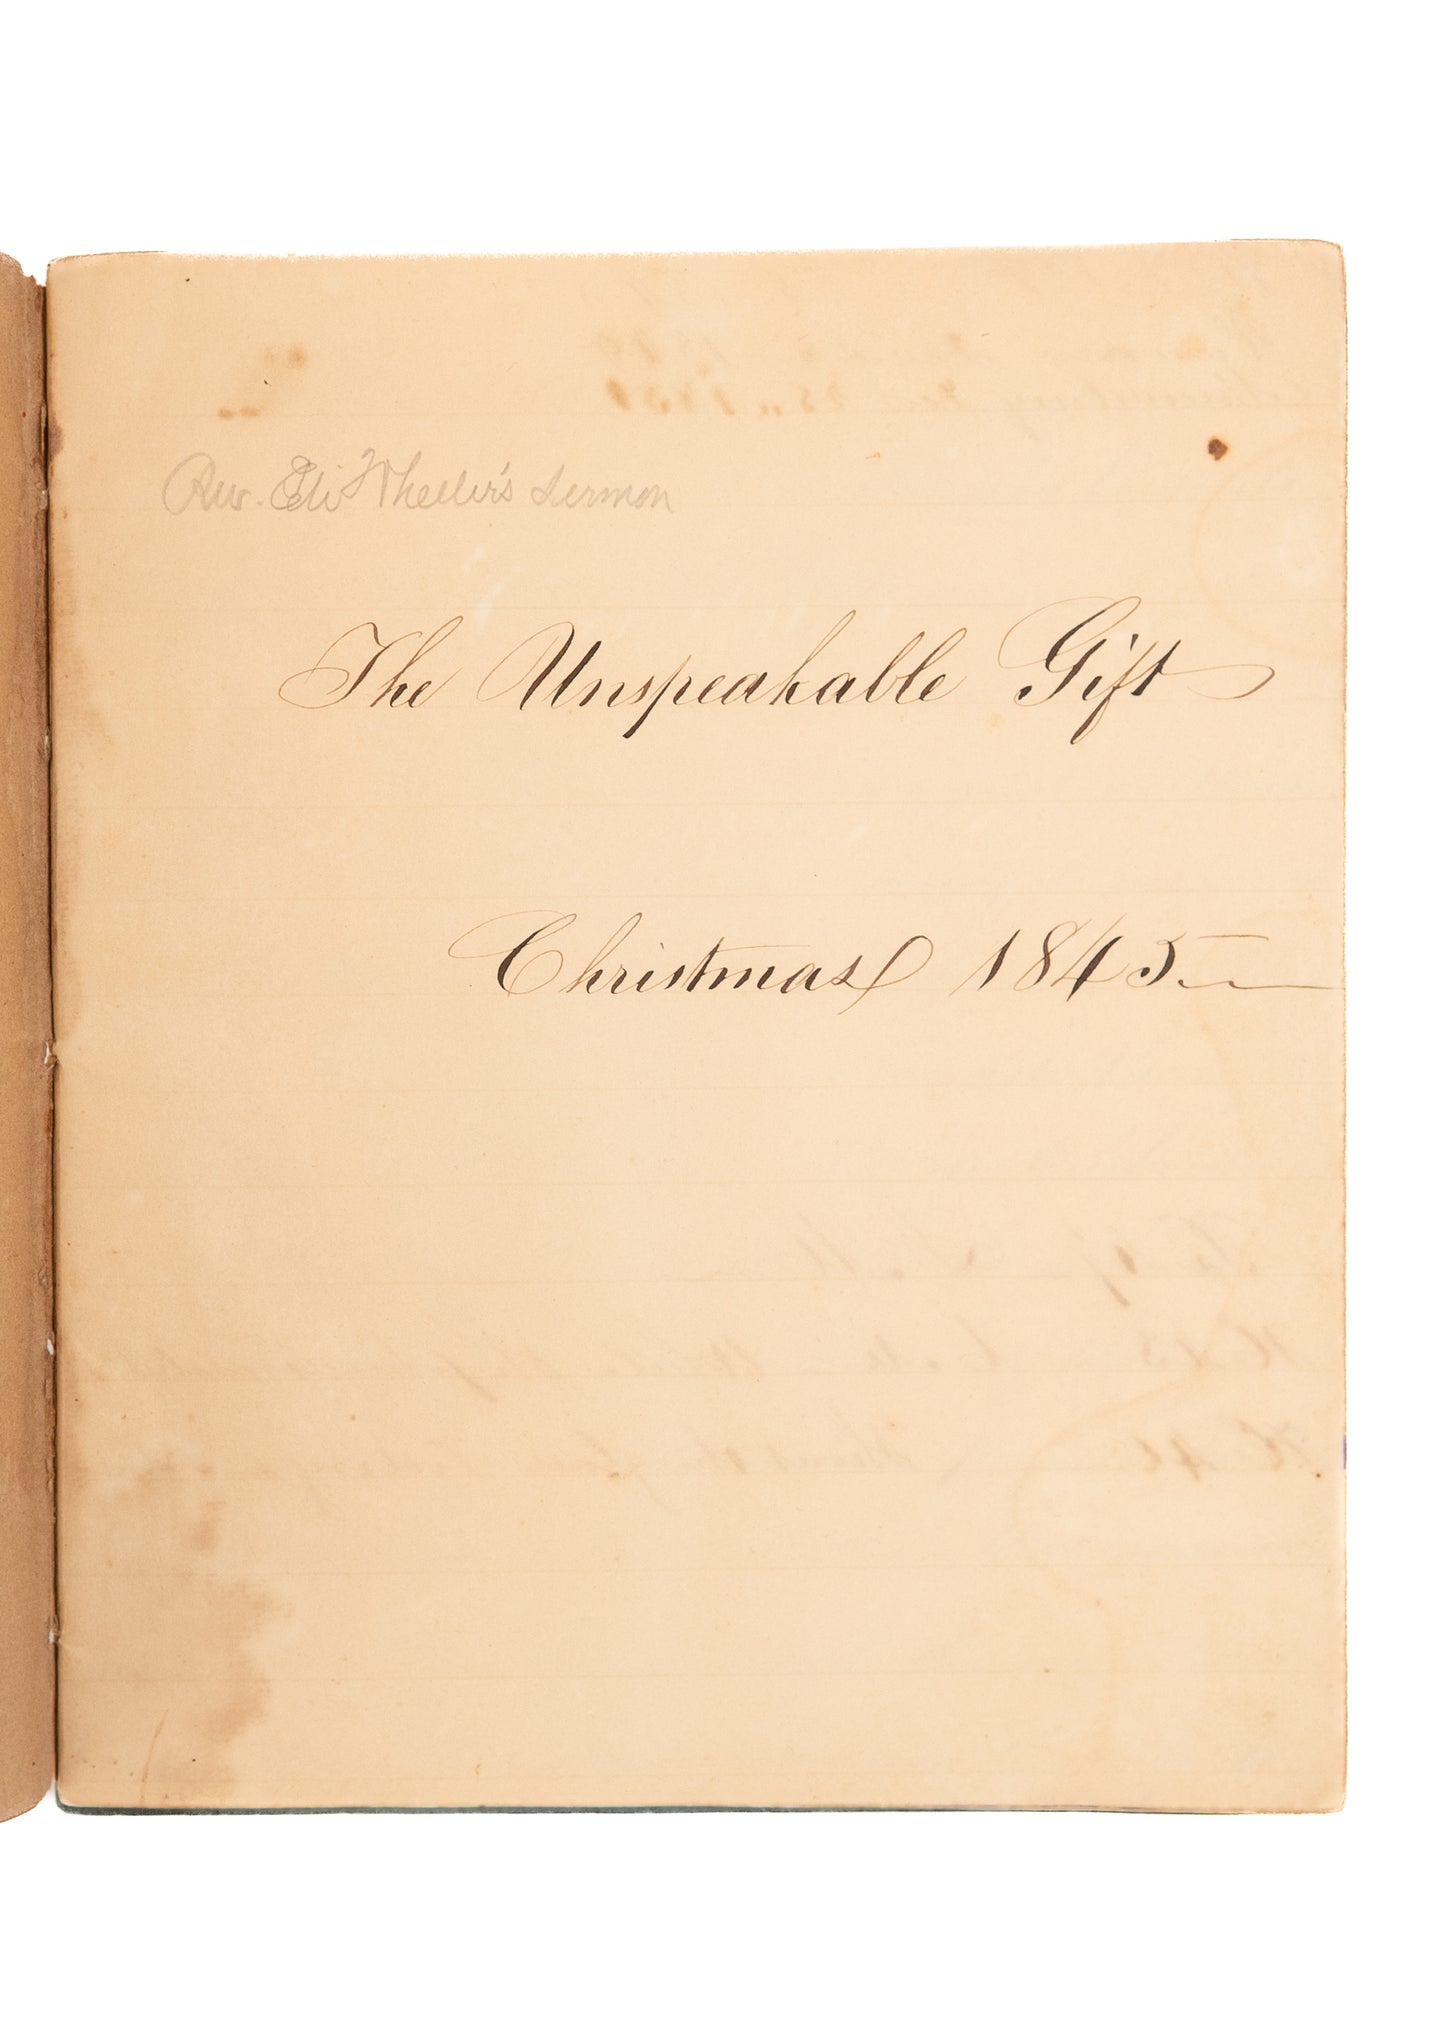 Rev. Eli Wheeler's Sermon
The Unspeakable Gift
Christmas 1845